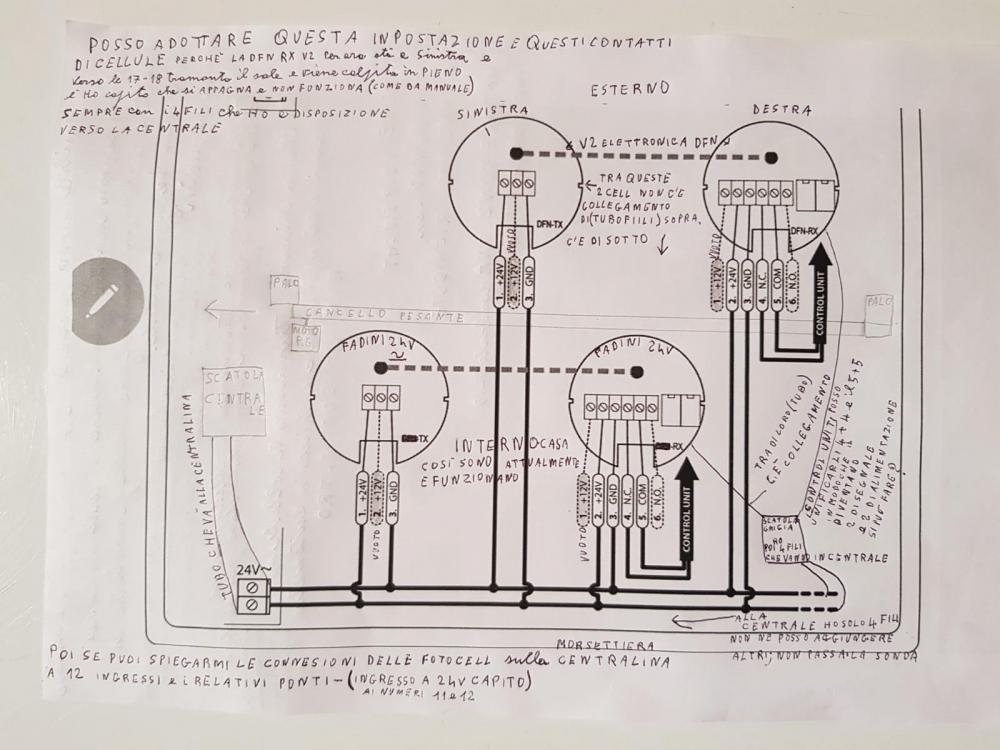 POSSO ADOTTARE QUESTA INPOSTAZIONE E QUESTI CONTATTI
DI CELLULE PERCHÈ LA DFN RX V2 era a sinistra e
verso le 17-18 tramonta il sole e viene colpita in PIENO
e Ho capito che si APPAGNA e NON FUNZIONA (COME DA MANUALE)
SEMPRE con i 4 FILI che HO a DISPOSIZIONE
VERSO LA CENTRALE
ESTERNO
SINISTRA
DESTRA
V2 ELETTRONICA DFN
TRA QUESTE
2 CELL NON C'È
COLLEGAMENTO
DI (TUBO FIILI) SOPRA,
C'È DI SOTTO
DFN-TX
DFN-RX
VUOTO
VUOTO
1. +24V
2. +12V
3. GND
1. +12V
2. +24V
3. GND
4. N.C.
5. COM
6. N.O.
CONTROL UNIT
PALO
CANCELLO PESANTE
PALO
MOTO
RE
FADINI 24V
~
FADINI 24V
SCATOLA
CENTRA
LE
TX
RX
INTERNO CASA
COSÌ SONO ATTUALMENTE
E FUNZIONANO
1. +24V
2. +12V
3. GND
VUOTO
1. +12V
2. +24V
3. GND
4. N.C.
5. COM
6. N.O.
VUOTO
CONTROL UNIT
TUBO CHE VÀ ALLA CENTRALINA
TRA DI LORO (TUBO)
C'È COLLEGAMENTO
(CONTROL UNIT) POSSO
UNIFICARLI 4+4 e il 5+5
IN MODO CHE
DIVENTANO
2 DI SEGNALE
e 2 DI ALIMENTAZIONE
SI PUÒ FARE?
SCATOLA
GRIGIA
HO
POI 4 FILI
CHE VANNO IN CENTRALE
24V~
ALLA
CENTRALE HO SOLO 4 FILI
NON NE POSSO AGGIUNGERE
ALTRI; NON PASSA LA SONDA
MORSETTIERA
POI SE PUOI SPIEGARMI LE CONNESIONI DELLE FOTOCELL sulla CENTRALINA
A 12 INGRESSI e i RELATIVI PONTI - (INGRESSO A 24V CAPITO)
AI NUMERI 11 e 12